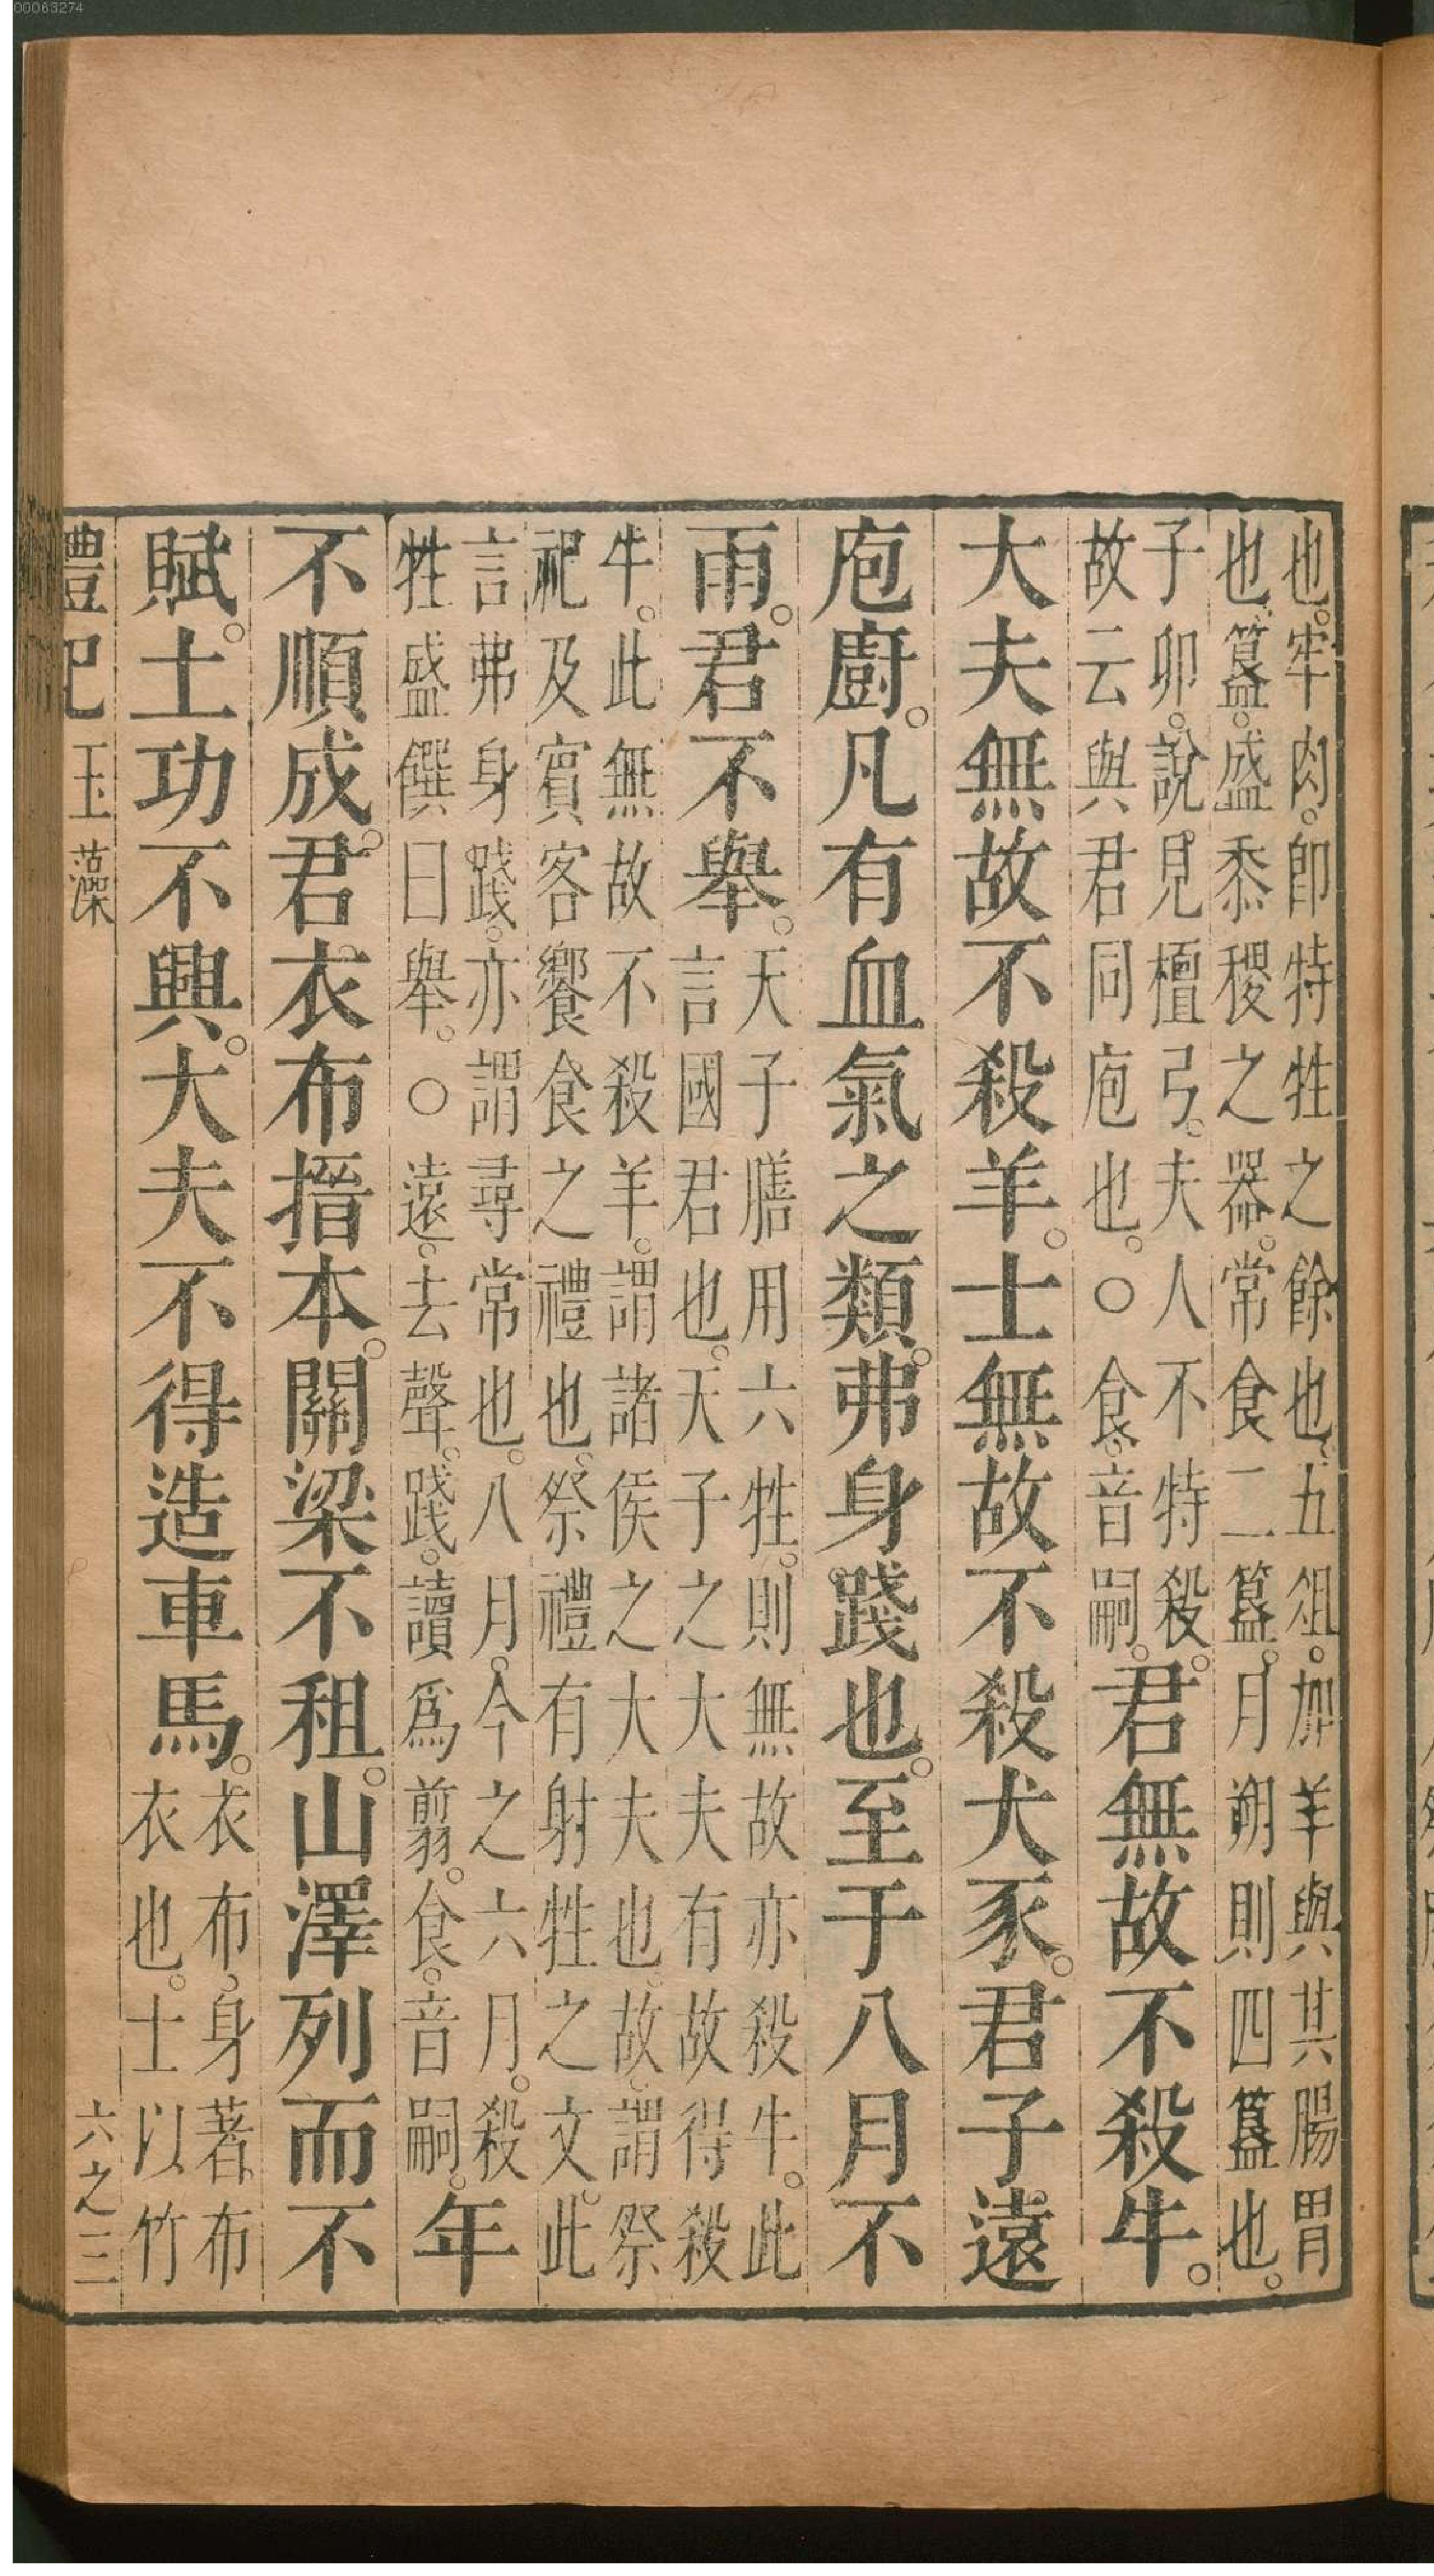 00063274
也。牢肉。卽特牲之餘也。五俎。加羊與其腸胃
也。簋。盛黍稷之器。常食二簋。月朔則四簋也。
子卯。說見檀弓。夫人不特殺。
故云與君同庖也。○食。音嗣。
君無故不殺牛。
大夫無故不殺羊。士無故不殺犬豕。君子遠
庖廚。凡有血氣之類。弗身踐也。至于八月不
雨。君不舉。
天子膳用六牲。則無故亦殺牛。此
言國君也。天子之大夫有故得殺
牛。此無故不殺羊。謂諸侯之大夫也。故。謂祭
祀及賓客饗食之禮也。祭禮有射牲之文。此
言弗身踐。亦謂尋常也。八月。今之六月。殺
牲盛饌曰舉。○遠。去聲。踐。讀爲翦。食。音嗣。
年
不順成。君衣布搢本。關梁不租。山澤列而不
賦。土功不興。大夫不得造車馬。
衣布。身著布
衣也。士以竹
禮記 玉藻 六之三